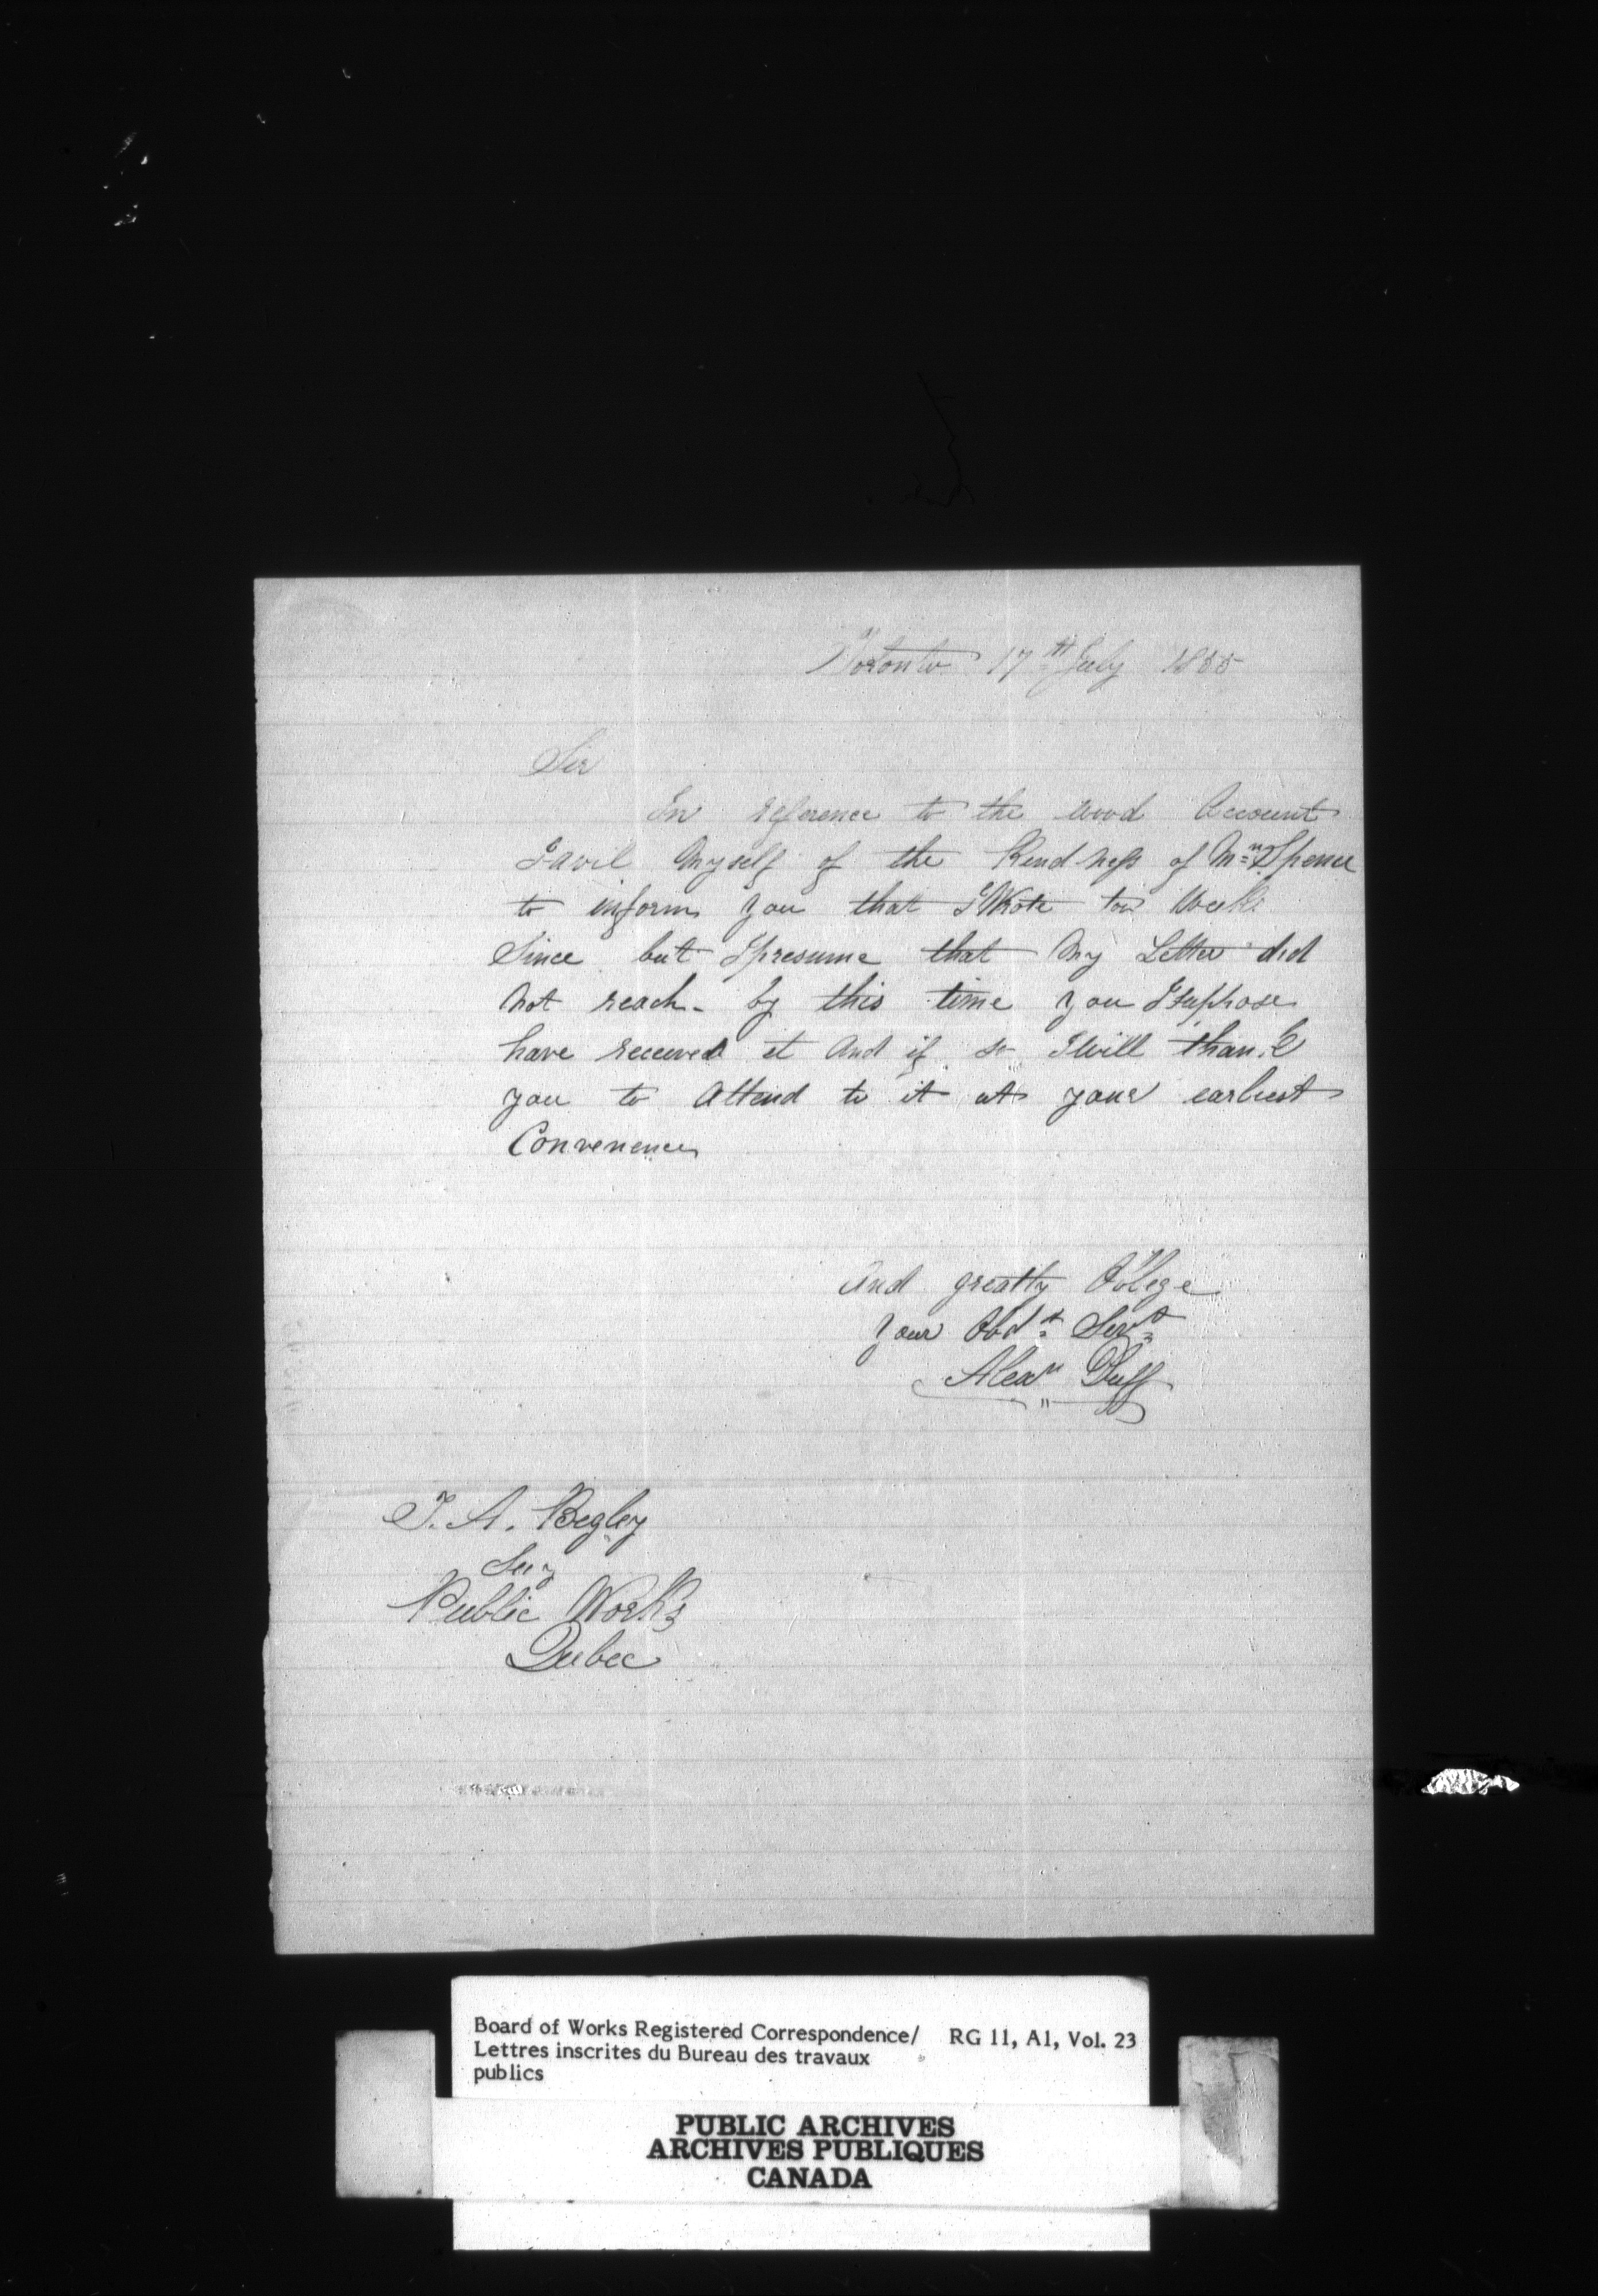 Toronto 17th July 1855
Sir
In reference to the wood Account
I avil Myself of the Kindness of Mr Spence
to inform you that I Wrote tow Weeks
Since but I presume that My Letter did
Not reach - by this time you I suphose
have received it And if so I will thank
you to Attend to it at your earliest
Convenence
And greatly Oblege
Your Obdt Servt
Alexr Duff
T. A. Begley
Secy
Public Works
Quebec
Board of Works Registered Correspondence/ RG 11, A1, Vol. 23
Lettres inscrites du Bureau des travaux
publics
PUBLIC ARCHIVES
ARCHIVES PUBLIQUES
CANADA